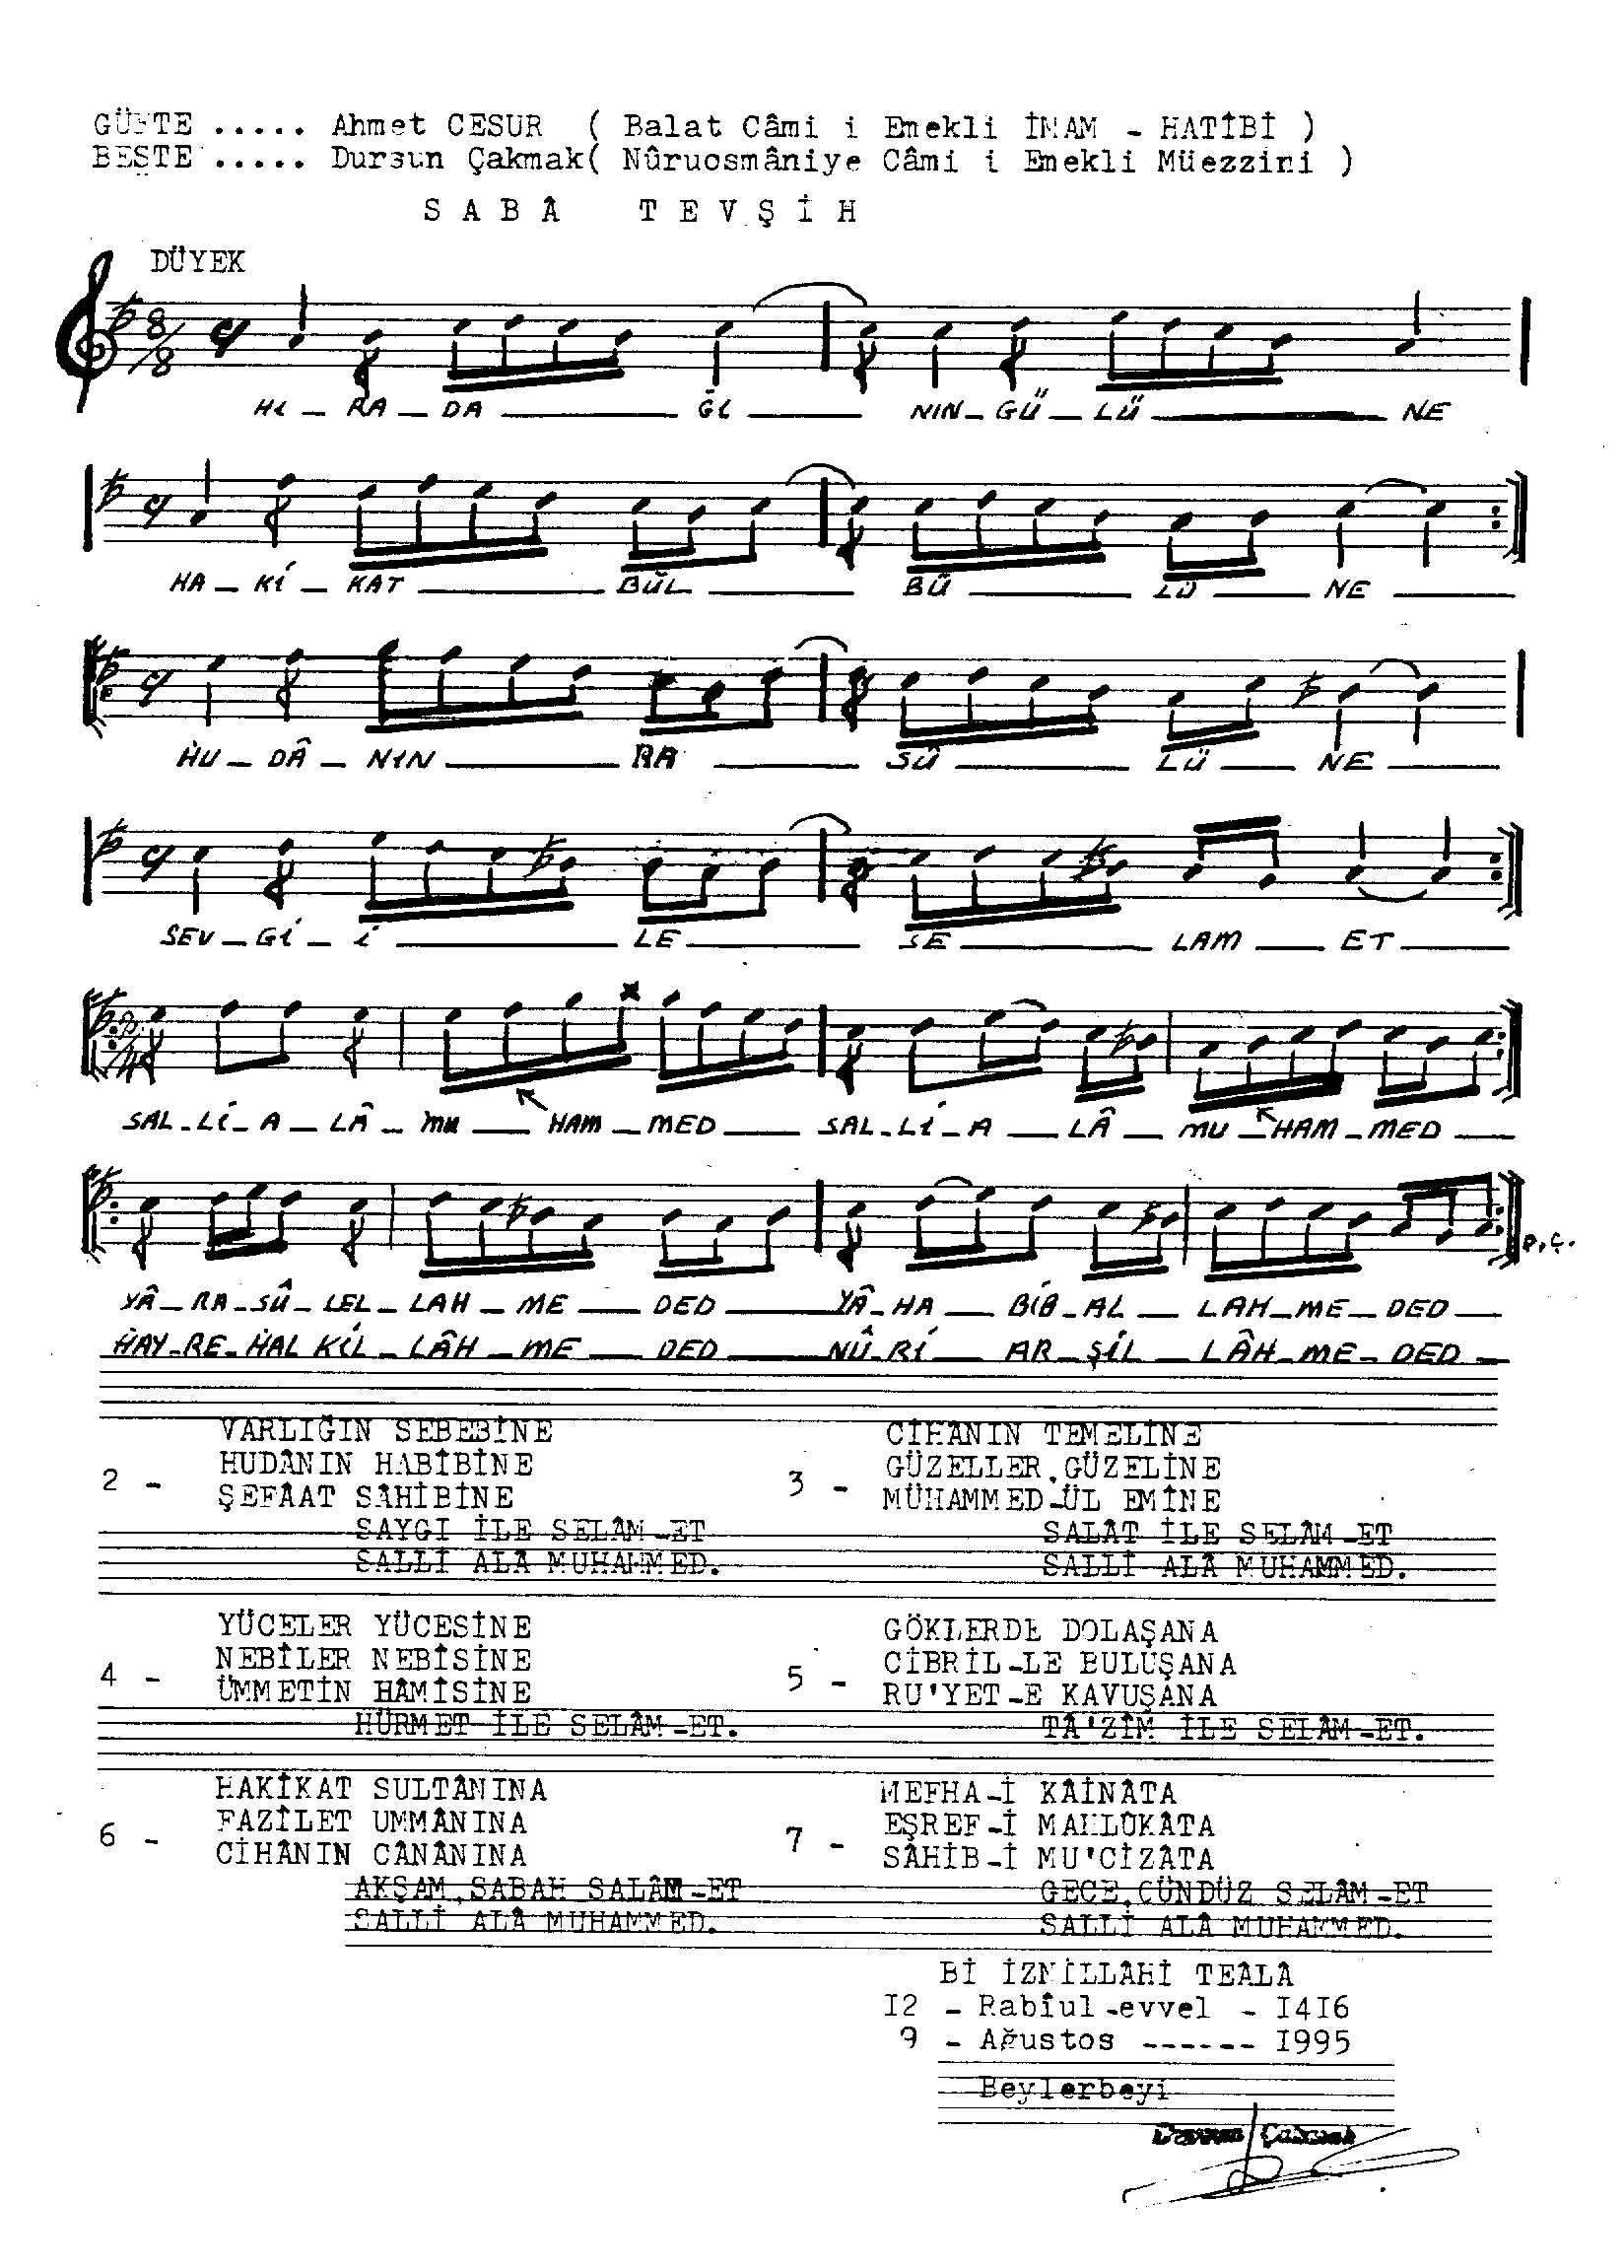 GÜFTE ..... Ahmet CESUR ( Balat Câmi i Emekli İMAM - HATİBİ )
BESTE ..... Dursun Çakmak( Nûruosmâniye Câmi i Emekli Müezzini )
SABÂ TEVŞİH
DÜYEK
8/8
HI - RA - DA ĞI NIN - GÜ - LÜ NE
HA - Kİ - KAT BÜL BÜ LÜ NE
HU - DÂ - NIN RA SÛ LÜ NE
SEV - Gİ - İ LE SE LAM ET
2/4
SAL - Lİ - A - LÂ - MU HAM - MED SAL - Lİ - A LÂ - MU - HAM - MED
YÂ - RA - SÛ - LEL - LAH - ME DED YÂ - HA BİB - AL LAH - ME - DED
P.Ç.
HAY - RE - HAL KİL - LÂH - ME DED NÛ - Rİ AR - ŞİL LÂH - ME - DED
2 -
VARLIĞIN SEBEBİNE
HUDÂNIN HABİBİNE
ŞEFÂAT SÂHİBİNE
SAYGI İLE SELÂM-ET
SALLİ ALÂ MUHAMMED.
3 -
CİHÂNIN TEMELİNE
GÜZELLER GÜZELİNE
MÜHAMMED-ÜL EMÎNE
SALÂT İLE SELÂM-ET
SALLİ ALÂ MUHAMMED.
4 -
YÜCELER YÜCESİNE
NEBÎLER NEBÎSİNE
ÜMMETİN HÂMÎSİNE
HÜRMET İLE SELÂM-ET.
5 -
GÖKLERDE DOLAŞANA
CİBRİL-LE BULUŞANA
RU'YET-E KAVUŞANA
TÂ'ZÎM İLE SELÂM-ET.
6 -
HAKÎKAT SULTÂNINA
FAZÎLET UMMÂNINA
CİHÂNIN CÂNÂNINA
AKŞAM,SABAH SALÂM-ET
SALLİ ALÂ MUHAMMED.
7 -
MEFHA-İ KÂİNÂTA
EŞREF-İ MAHLÛKÂTA
SÂHİB-İ MU'CİZÂTA
GECE,GÜNDÜZ SELÂM-ET
SALLİ ALÂ MUHAMMED.
Bİ İZNİLLÂHİ TEÂLÂ
I2 - Rabîul-evvel - I4I6
9 - Ağustos ------ I995
Beylerbeyi
Dursun Çakmak